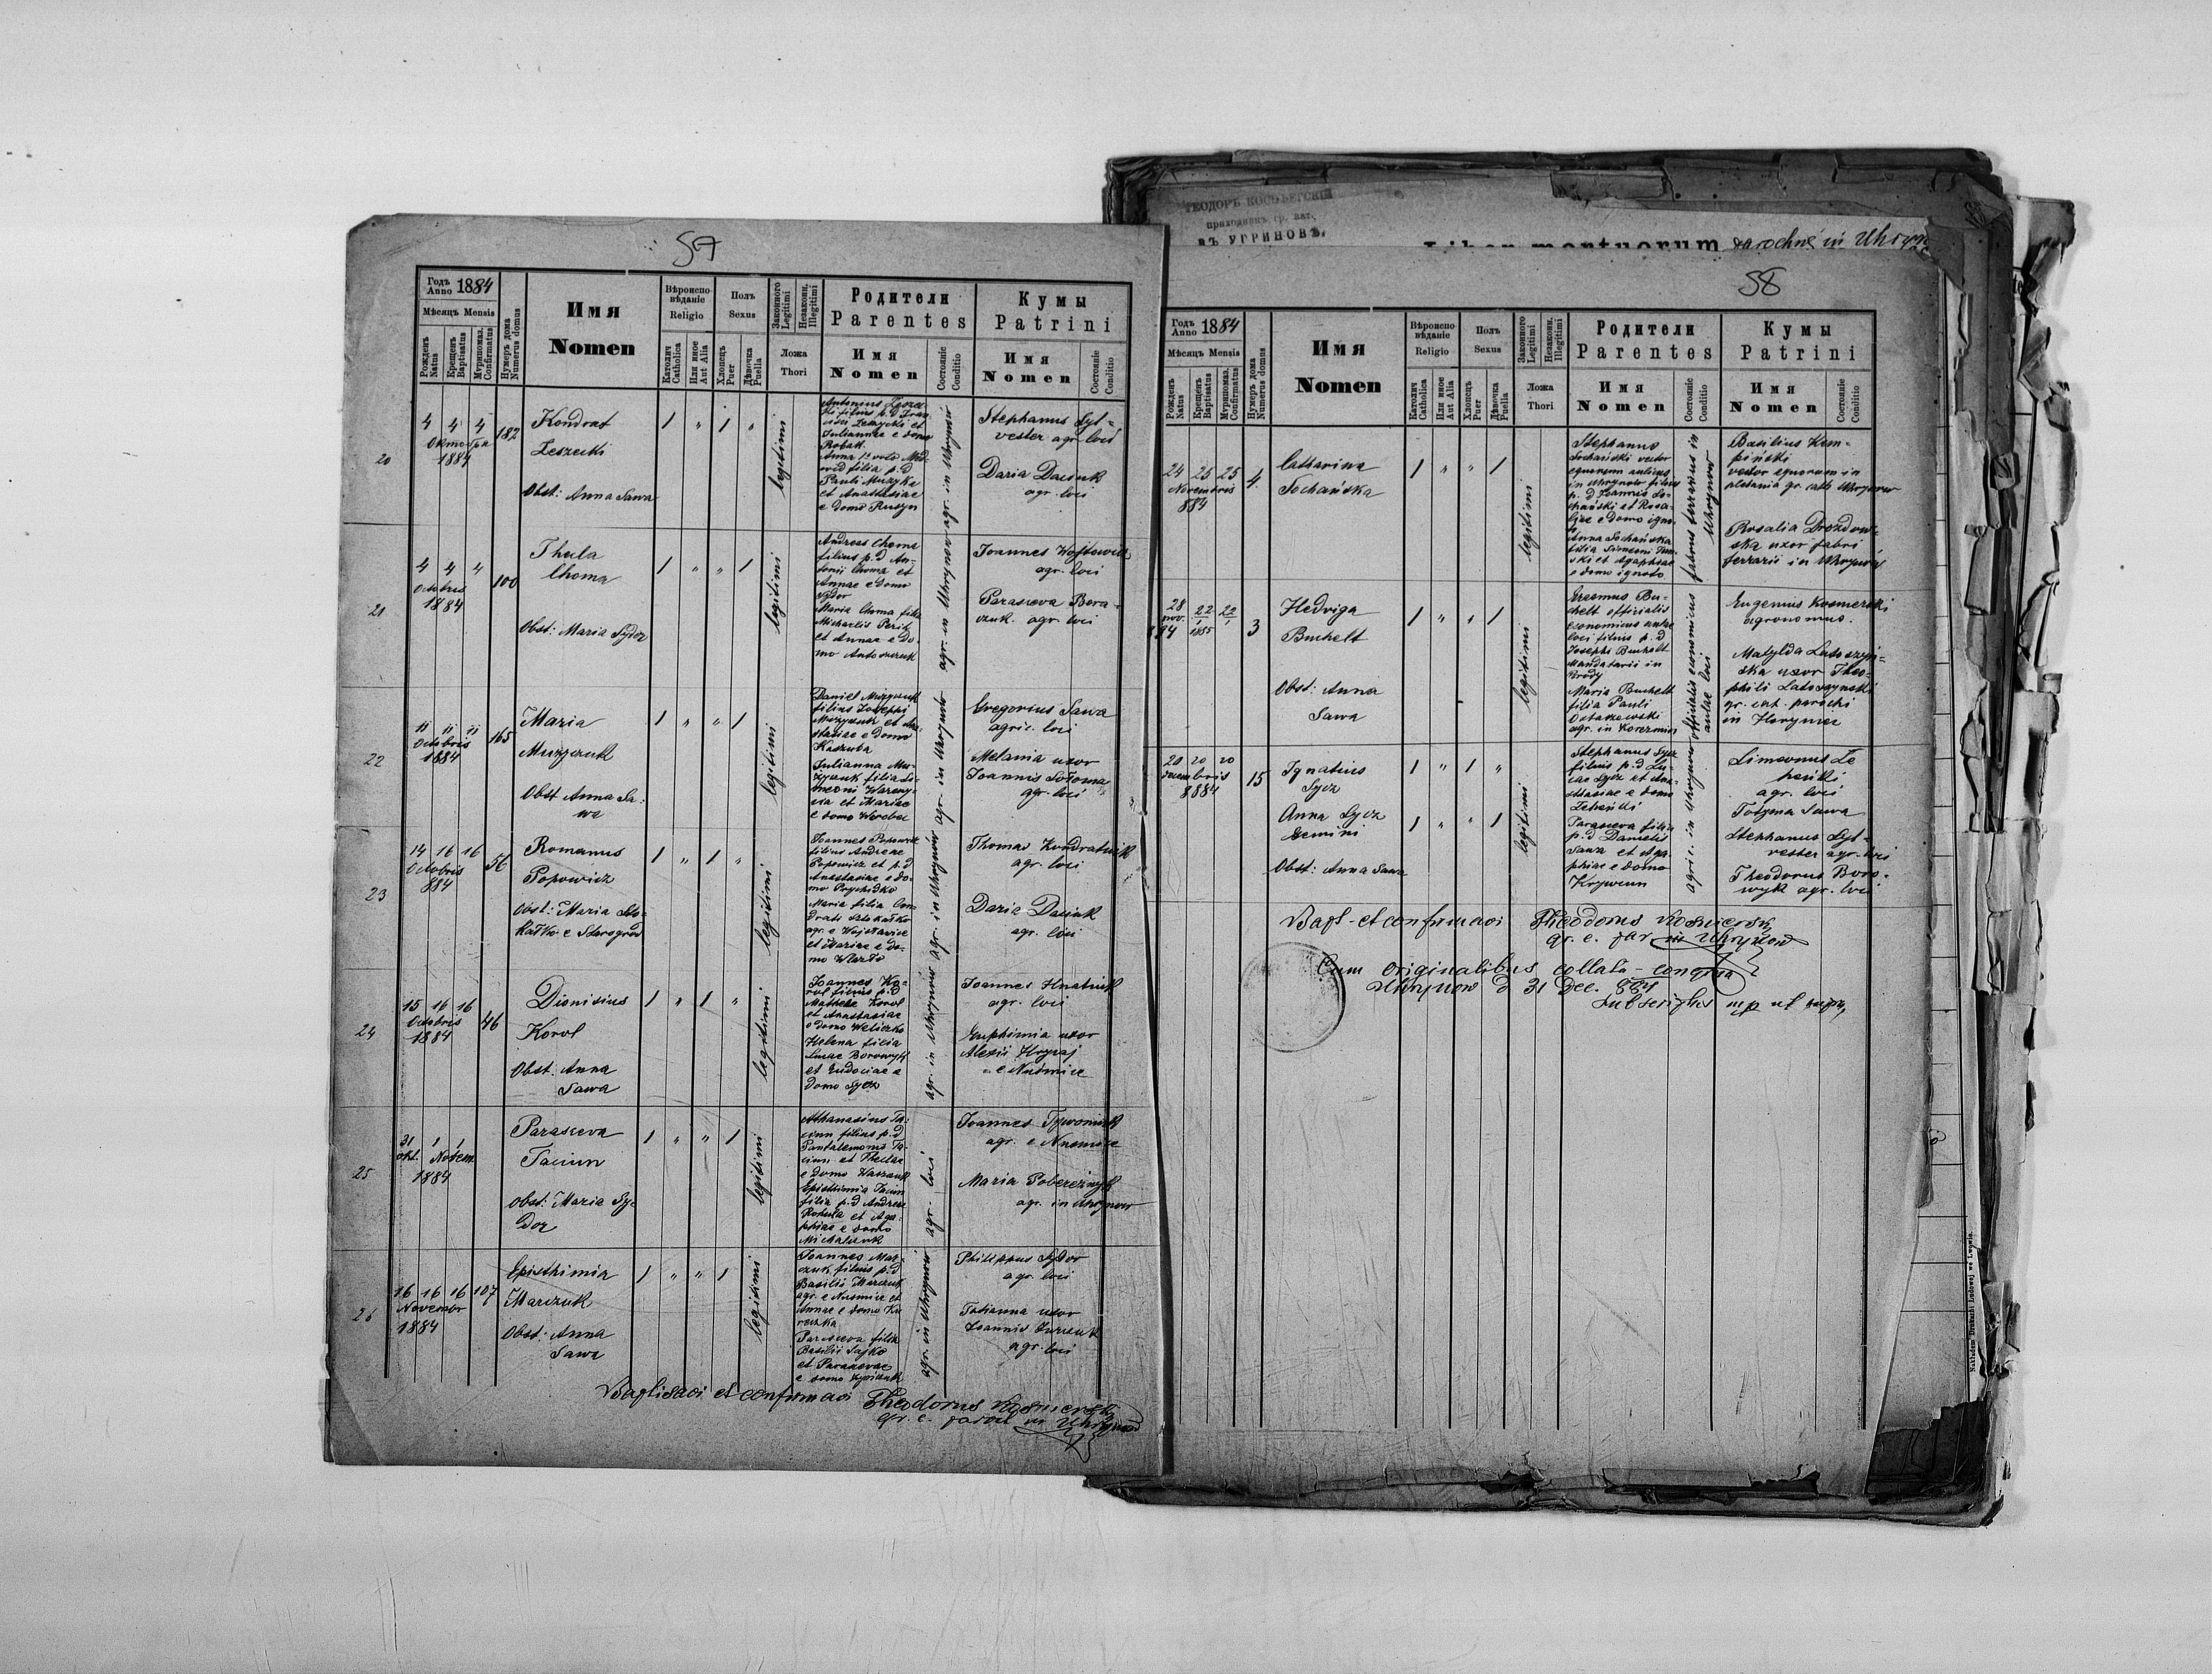 57
Годъ Anno 1884
Мѣсяцъ Mensis
Рожденъ Natus
Крещенъ Baptisatus
Мvрипомаз. Confirmatus
Нумеръ дома Numerus domus
Имя
Nomen
Вѣроиспо-
вѣданіе
Religio
Католич Catholica
Или иное Aut Alia
Полъ
Sexus
Хлопецъ Puer
Дѣвочка Puella
Законного Legitimi
Незаконн. Illegitimi
Ложа
Thori
Родители
Parentes
Имя
Nomen
Состояніе Conditio
Кумы
Patrini
Имя
Nomen
Состояніе Conditio
20
4 4 4
Октобра
1884
182
Kondrat
Leszecki
Obst: Anna Sawa
1 " 1 "
legitimi
Antonius Leszec-
ki filius p.d Fran-
cisci Leszycki et
Juliannae e domo
Anna 1o voto Med-
wed filia p.d
Pauli Muzyka
et Anastasiae
e domo Rusyn
agr. in Uhrynow
Stephanus Syl-
vester agr loci
Daria Daciuk
agr. loci
21
4 4 "
Octobris
1884
100
Thecla
Choma
Obst: Maria Sydor
1 " " 1
legitimi
Andreas Choma
filius p.d An-
tonii Choma et
Annae e domo
Sydor
Maria Choma filia
Michaelis Perih
et Annae e do-
mo Antoszczuk
agr. in Uhrynow
Joannes Wojtowicz
agr. loci
Parasceva Bora-
czuk agr. loci
22
11 11 11
Octobris
1884
165
Maria
Muzyczuk
Obst Anna Sa-
wa
1 " " 1
legitimi
Daniel Muzyczuk
filius Josephi
Muzyczuk et Ana-
stasiae e domo
Kaszuba
Julianna Mu-
zyczuk filia Si-
meoni Wareny-
cia et Mariae
e domo Weroba
agr. in Uhrynow
Gregorius Sawa
agric. loci
Melania uxor
Joannis Sołoma
agr. loci
23
14 16 16
Octobris
884
56
Romanus
Popowicz
Obst: Maria Szto-
kałko e Starogrod
1 " 1 "
legitimi
Joannes Popowicz
filius Andreae
Popowicz et p.d
Anastasiae e do-
mo Prychidko
Maria filia Con-
drati Sztokałko
agr. e Wojsławice
et Mariae e do-
mo
agr. in Uhrynów
Thomas Kondratiuk
agr. loci
Daria Daciuk
agr. loci
24
15 16 16
Octobris
1884
46
Dionisius
Korol
Obst: Anna
Sawa
1 " 1 "
legitimi
Joannes Ko-
rol filius p.d
Matheae Korol
et Anastasiae
e domo Weliczko
Helena filia
Lucae Borowyk
et Eudociae e
domo Sycz
agr. in Uhrynów
Joannes Hnatiuk
agr. loci
Euphimia uxor
Alexii Hrycaj
e Nusmice
25
31 1 1
okt. Novem.
1884
Parasceva
Taciun
Obst: Maria Sy-
dor
1 " " 1
legitimi
Athanasius Ta-
ciun filius p.d
Pantalemonis Ta-
ciun et Theclae
e domo Waszczuk
Episthimia Taciun
filia p.d Andreae
Rohula et Aga-
phiae e domo
Michalczuk
agr. loci
Joannes Tywoniuk
agr. e Nusmice
Maria Pobereżnyk
agr. in Uhrynow
26
16 16 16
Novembr
1884
107
Episthimia
Marczuk
Obst: Anna
Sawa
1 " " 1
legitimi
Joannes Mar-
czuk filius p.d
Basilii Marczuk
agr. e Nusmice et
Annae e domo Ku-
reszka
Parasceva filia
Basilii Sajko
et Parascevae
e domo
agr. in Uhrynów
Philippus Sydor
agr. loci
Tatianna uxor
Joannis Jurczuk
agr. loci
Baptisavi et confirmavi Theodorus Kosmerski
gr. c. paroch in Uhrynow
ТЕОДОРЪ
приходникъ гр. кат.
ВЪ УГРИНОВѢ,
Liber mortuorum parochiae in Uhryn
58
Годъ Anno 1884
Мѣсяцъ Mensis
Рожденъ Natus
Крещенъ Baptisatus
Мvрипомаз. Confirmatus
Нумеръ дома Numerus domus
Имя
Nomen
Вѣроиспо-
вѣданіе
Religio
Католич Catholica
Или иное Aut Alia
Полъ
Sexus
Хлопецъ Puer
Дѣвочка Puella
Законного Legitimi
Незаконн. Illegitimi
Ложа
Thori
Родители
Parentes
Имя
Nomen
Состояніе Conditio
Кумы
Patrini
Имя
Nomen
Состояніе Conditio
24 25 25
Novembris
884
4
Catharina
Sochańska
1 " " 1
legitimi
Stephanus
Sochański vector
equorum aulicus
in Uhrynow filius
p. d Joannis So-
chański et Rosa-
liae e domo igno-
Anna Sochańska
filia Simeoni
et Agaphiae
e domo ignoto
faber ferrarius in
Uhrynow
Basilius Kem-
piński
vector equorum in
gr. cath Uhrynow
Rosalia Drozdow-
ska uxor fabri
ferrarii in Uhrynów
28 22 22
nov. 1 1
884 1885
3
Hedviga
Buchelt
Obst: Anna
Sawa
1 " " 1
legitimi
Erasmus Bu-
chelt officialis
economicus aulae
loci filius p. d
Josephi Buchelt
Mandatarii in
Brody
Maria Buchelt
filia Pauli
Ostaszewski
agr. in Korczmin
officialis economicus
aulae loci
Eugenius Kosmerski
agronomus.
Matylda Latoszyń-
ska uxor Theo-
phili Latoszynski
gr. cat. parochi
in Horyniec
20 20 20
Decembris
8884
15
Ignatius
Sycz
Anna Sycz
Gemini
Obst: Anna Sawa
1 " 1 "
1 " " 1
legitimi
Stephanus Sycz
filius p.d Lu-
cae Sycz et Ana-
stasiae e domo
Parasceva filia
p.d Danielis
Sawa et Aga-
phiae e domo
Krywcun
agric. in Uhrynow
agr. loci
Totyana Sawa
Stephanus Syl-
vester agr. loci
Theodorus Boro-
wyk agr. loci
Bapt- et confirmavi Theodorus Kosmerski
gr. c. par in Uhrynow
Cum originalibus collata - congrua
Uhrynow d 31 Dec. 884
Subscriptus mp ut supra,
Nakładem Drukarni Ludowej we Lwowie.